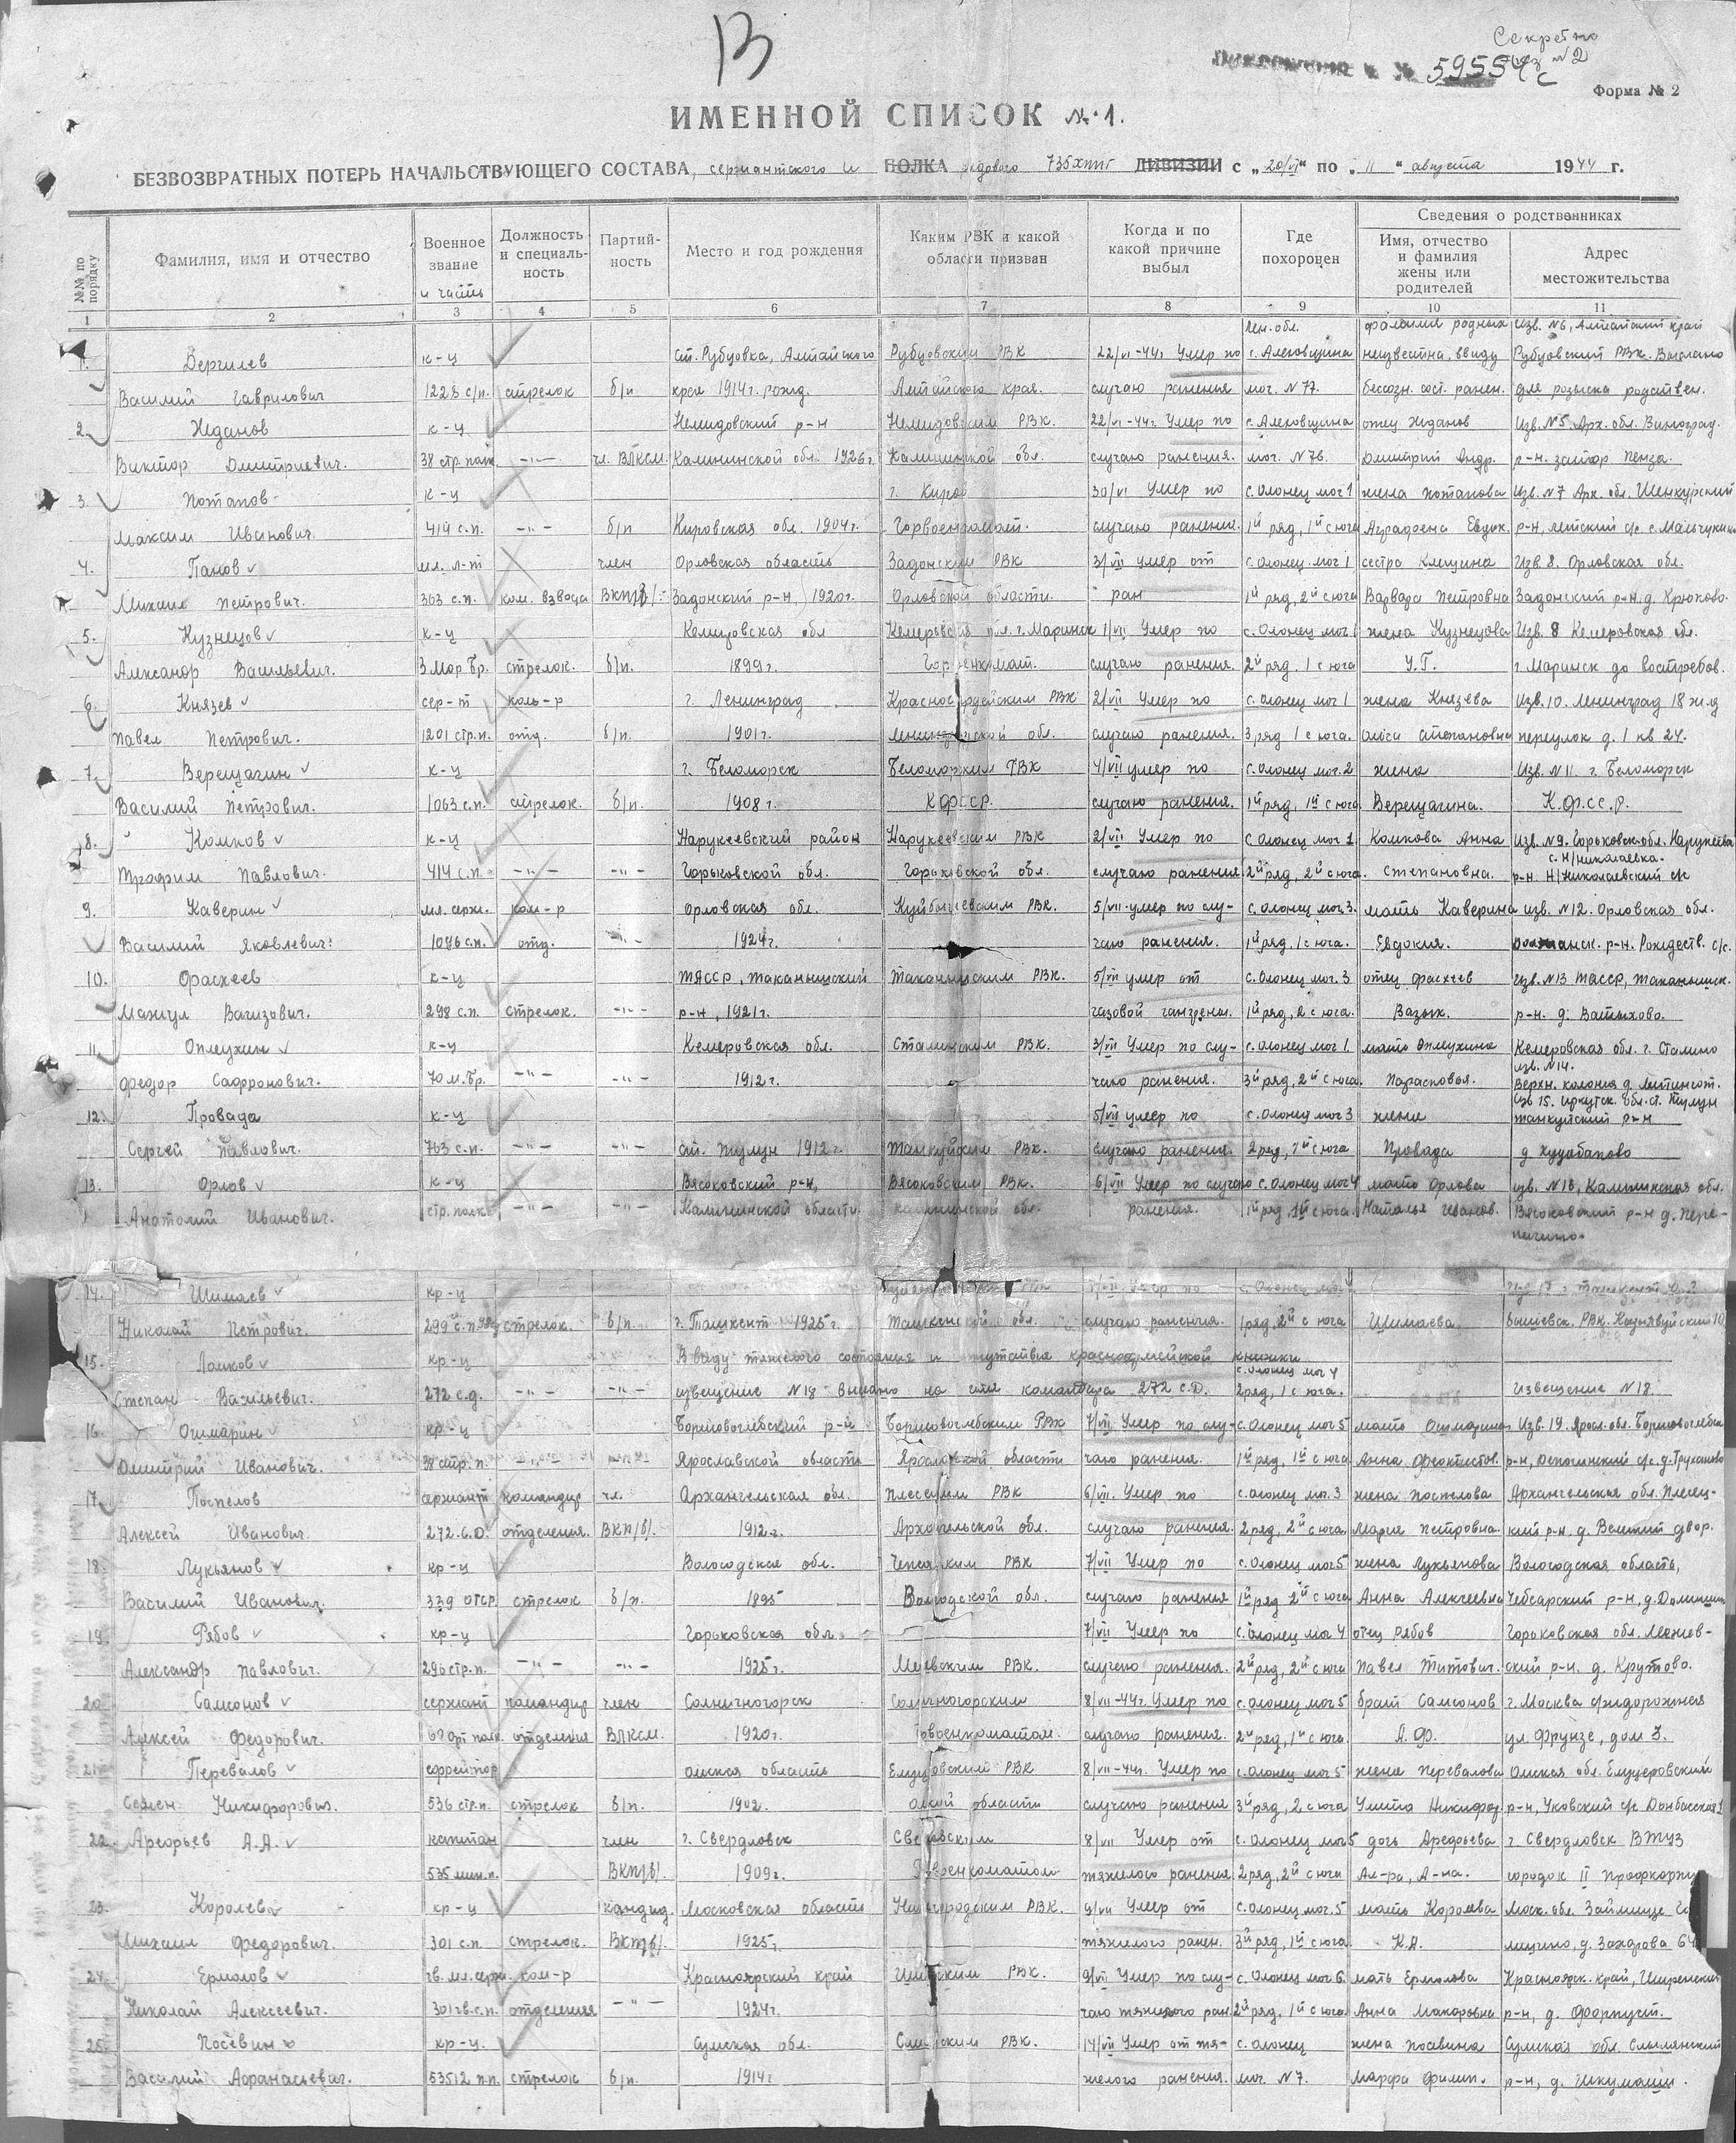 13
Секретно
экз №2
59554с
Форма № 2
ИМЕННОЙ СПИСОК №1.
БЕЗВОЗВРАТНЫХ ПОТЕРЬ НАЧАЛЬСТВУЮЩЕГО СОСТАВА, сержантского и ПОЛКА рядового 735 хппг ДИВИЗИИ с „20/VI" по „11" августа 1944 г.
№№ по порядку
Фамилия, имя и отчество
Военное звание и часть
Должность и специальность
Партийность
Место и год рождения
Каким РВК и какой области призван
Когда и по какой причине выбыл
Где похоронен
Сведения о родственниках
Имя, отчество и фамилия жены или родителей
Адрес местожительства
1 2 3 4 5 6 7 8 9 10 11
Лен. обл. фамилия родных Изв. №6, Алтайский край
1. Дергилев к-ц ст. Рубцовка, Алтайского Рубцовским РВК 22/VI-44г. Умер по с. Алеховщина неизвестна, ввиду Рубцовский РВК. Выслано
Василий Гаврилович 1228 с/п. стрелок б/п края 1914 г. рожд. Алтайского края. случаю ранения мог. №77. бессозн. сост. ранен. для розыска родствен.
2. Жданов к-ц Нелидовский р-н Нелидовским РВК. 22/VI-44г. Умер по с. Алеховщина отец Жданов Изв. №5. Арх. обл. Виноград.
Виктор Дмитриевич. 38 стр. полк -"- чл. ВЛКСМ. Калининской обл. 1926 г. Калининской обл. случаю ранения. мог. №76. Дмитрий Андр. р-н.
3. Потапов к-ц г. Киров 30/VI Умер по с. Олонец мог 1 жена Потапова Изв. №7 Арх. обл. Шенкурский
Максим Иванович. 414 с.п. -"- б/п Кировская обл. 1904г. Горвоенкомат. случаю ранения. 1й ряд, 1й с юга Аграфена Евдок. р-н,
4. Панов мл. л-т член Орловская область Задонским РВК 3/VII умер от с. Олонец. мог 1 сестра Клещина Изв. 8. Орловская обл.
Михаил Петрович. 303 с.п. ком. взвода ВКП/б/. Задонский р-н, 1920г. Орловской области. ран 1й ряд, 2й с юга Варвара Петровна Задонский р-н. д. Крюково.
5. Кузнецов к-ц Кемеровская обл Кемеровская обл. г. Маринск 1/VII Умер по с. Олонец мог 1 жена Кузнецова Изв. 8 Кемеровская обл.
Александр Васильевич. 3 Мор. бр. стрелок. б/п. 1899г. Горвоенкомат. случаю ранения. 2й ряд, 1 с юга У.Г. г. Маринск до востребов.
6. Князев сер-т ком-р г. Ленинград Красногвардейским РВК 2/VII Умер по с. Олонец мог 1 жена Князева Изв. 10. Ленинград 18 ж.д
Павел Петрович. 1201 стр.п. отд. б/п. 1901г. Ленинградской обл. случаю ранения. 3 ряд 1 с юга. Ольга Степановна переулок д. 1 кв 24.
7. Верещагин к-ц г. Беломорск Беломорским РВК 4/VII умер по с. Олонец мог. 2 жена Изв. №11. г. Беломорск
Василий Петрович. 1063 с.п. стрелок. б/п. 1908 г. КФССР. случаю ранения. 1й ряд, 1й с юга Верещагина. К.Ф.С.С.Р.
8. Комков к-ц Нарукеевский район Нарукеевским РВК 2/VII Умер по с. Олонец мог 1 Комкова Анна Изв. №9. Горьковск. обл. Нарукеевск
с. Н/Николаевка.
Трофим Павлович. 414 с.п. -"- -"- Горьковской обл. Горьковской обл. случаю ранения 2й ряд, 2й с юга. Степановна. р-н. Н/Николаевский с/с
9. Каверин мл. серж. ком-р Орловская обл. Куйбышевским РВК. 5/VII умер по слу- с. Олонец мог. 3. мать Каверина изв. №12. Орловская обл.
Василий Яковлевич. 1046 с.п. отд. -"- 1924г. чаю ранения. 1й ряд, 1 с юга. Евдокия. р-н. Рождеств. с/с.
10. Фрасхеев к-ц ТАССР, Таканышский Таканышским РВК. 5/VII умер от с. Олонец мог. 3 отец Фасхеев Изв. №13 ТАССР, Таканышск.
Мангул Вагизович. 298 с.п. стрелок. -"- р-н, 1921г. газовой гангрены. 1й ряд, 2 с юга. Вазых. р-н. д. Ватыхово.
11. Оплеухин к-ц Кемеровская обл. Сталинским РВК. 3/VII Умер по слу- с. Олонец мог 1. мать Оплеухина Кемеровская обл. г. Сталино
изв. №14.
Федор Сафронович. 70 м. бр. -"- -"- 1912г. чаю ранения. 3й ряд, 2й с юга. Парасковья. Верхн. колония д.
Изв 15. Иркутск. обл. ст. Тулун
12. Провада к-ц 5/VII умер по с. Олонец мог 3 жена р-н
Сергей Павлович. 763 с.п. -"- -"- ст. Тулун 1912г. РВК. случаю ранения. 2 ряд, 1й с юга Провада д.
13. Орлов к-ц Высоковский р-н, Высоковским РВК. 6/VII Умер по случаю с. Олонец мог 4 мать Орлова изв. №16, Калининская обл.
Анатолий Иванович. стр. полк -"- -"- Калининской области Калининской обл. ранения. 1й ряд, 1й с юга. Наталья Иванов. Высоковский р-н д.
14. Шимаев кр-ц Умер по с. Олонец мог 4
Николай Петрович. 299 с.п. стрелок. б/п. г. Ташкент 1925г. Ташкентской обл. случаю ранения. 1 ряд, 2й с юга Шимаева. РВК.
15. Лаиков кр-ц Ввиду тяжелого состояния и отсутствия красноармейской книжки
с. Олонец мог 4
Степан Васильевич. 272 с.д. -"- -"- извещение №18 выслано на имя командира 272 с.д. 2 ряд, 1 с юга. Извещение №18.
16. Ошмарин кр-ц Борисоглебский р-н Борисоглебским РВК 7/VII Умер по слу- с. Олонец мог 5 мать Ошмарина Изв. 19. Яросл. обл. Борисоглебск
Дмитрий Иванович. 38 стр. п. -"- -"- Ярославской области Ярославской области чаю ранения. 1й ряд, 1й с юга Анна Феоктистов. р-н,
17. Поспелов сержант командир чл. Архангельская обл. Плесецким РВК 6/VII. Умер по с. Олонец мог. 3 жена Поспелова Архангельская обл. Плесец-
Алексей Иванович. 272 с.д. отделения. ВКП/б/. 1912г. Архангельской обл. случаю ранения. 2 ряд, 2й с юга Мария Петровна. кий р-н. д. Великий двор.
18. Лукьянов кр-ц Вологодская обл. Чебсарским РВК 7/VII Умер по с. Олонец мог 5 жена Лукьянова Вологодская область,
Василий Иванович. 339 отср стрелок б/п. 1895 Вологодской обл. случаю ранения 1й ряд 2й с юга Анна Алексеевна Чебсарский р-н, д.
19. Рябов кр-ц Горьковская обл. 7/VII Умер по с. Олонец мог 4 отец Рябов Горьковская обл.
Александр Павлович. 296 стр.п. -"- -"- 1925г. РВК. случаю ранения. 2й ряд, 2й с юга Павел Титович. ский р-н. д. Крутово.
20. Самсонов сержант командир член Солнечногорск Солнечногорским 8/VII-44г. Умер по с. Олонец мог 5 брат Самсонов г. Москва
Алексей Федорович. отделения ВЛКСМ. 1920г. Горвоенкоматом. случаю ранения. 2й ряд, 1й с юга А.Ф. ул. Фрунзе, дом 3.
21. Перевалов ефрейтор Омская область РВК 8/VII-44г. Умер по с. Олонец мог 5 жена Перевалова Омская обл.
Семен Никифорович. 536 стр.п. стрелок б/п. 1902. Омской области случаю ранения 3й ряд, 2 с юга Улита Никифор. р-н,
22. Арефьев А.А. капитан член г. Свердловск Свердловским 8/VII Умер от с. Олонец мог 5 дочь Арефьева г. Свердловск ВТУЗ
535 мин.п. ВКП/б/. 1909г. Горвоенкоматом тяжелого ранения 2 ряд, 2й с юга Ал-ра, А-на. городок II Профкорпус
23. Королев кр-ц кандид. Московская область РВК. 9/VII Умер от с. Олонец мог. 5 мать Королева Моск. обл.
Михаил Федорович. 301 с.п. стрелок. ВКП/б/. 1925г. тяжелого ранен. 3й ряд, 1й с юга. К.А. д. Захарова
24. Ермолов гв. мл. серж. ком-р Красноярский край РВК. 9/VII Умер по слу- с. Олонец мог 6. мать Ермолова Красноярск. край,
Николай Алексеевич. 301 гв.с.п. отделения -"- 1924г. чаю тяжелого ран. 2й ряд, 1й с юга Анна Макаровна р-н, д. Форпуст.
25. Посевин кр-ц. Сумская обл. РВК. 14/VII Умер от тя- с. Олонец жена Посевина Сумская обл.
Василий Афанасьевич. 53512 п.п. стрелок б/п. 1914г желого ранения. мог. №7. Марфа Филип. р-н, д.